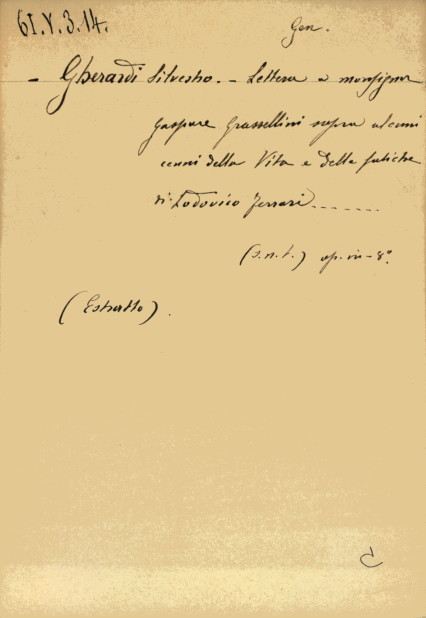 61.V.3.14.
Gen.
- Gherardi Silvestro. - Lettera a monsignor
Gaspare Grassellini sopra alcuni
cenni della Vita e delle fatiche
di Lodovico Ferrari......
(s.n.t.) op. in-8°.
(Estratto).
C